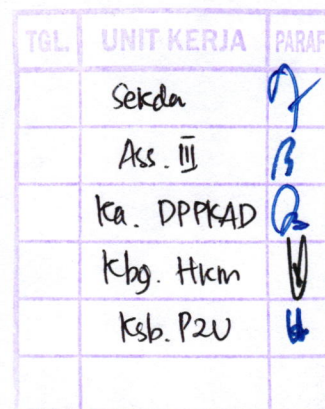 TGL. UNIT KERJA PARAF
Sekda
Ass. III
Ka. DPPKAD
Kbg. Hkm
Ksb. P2U